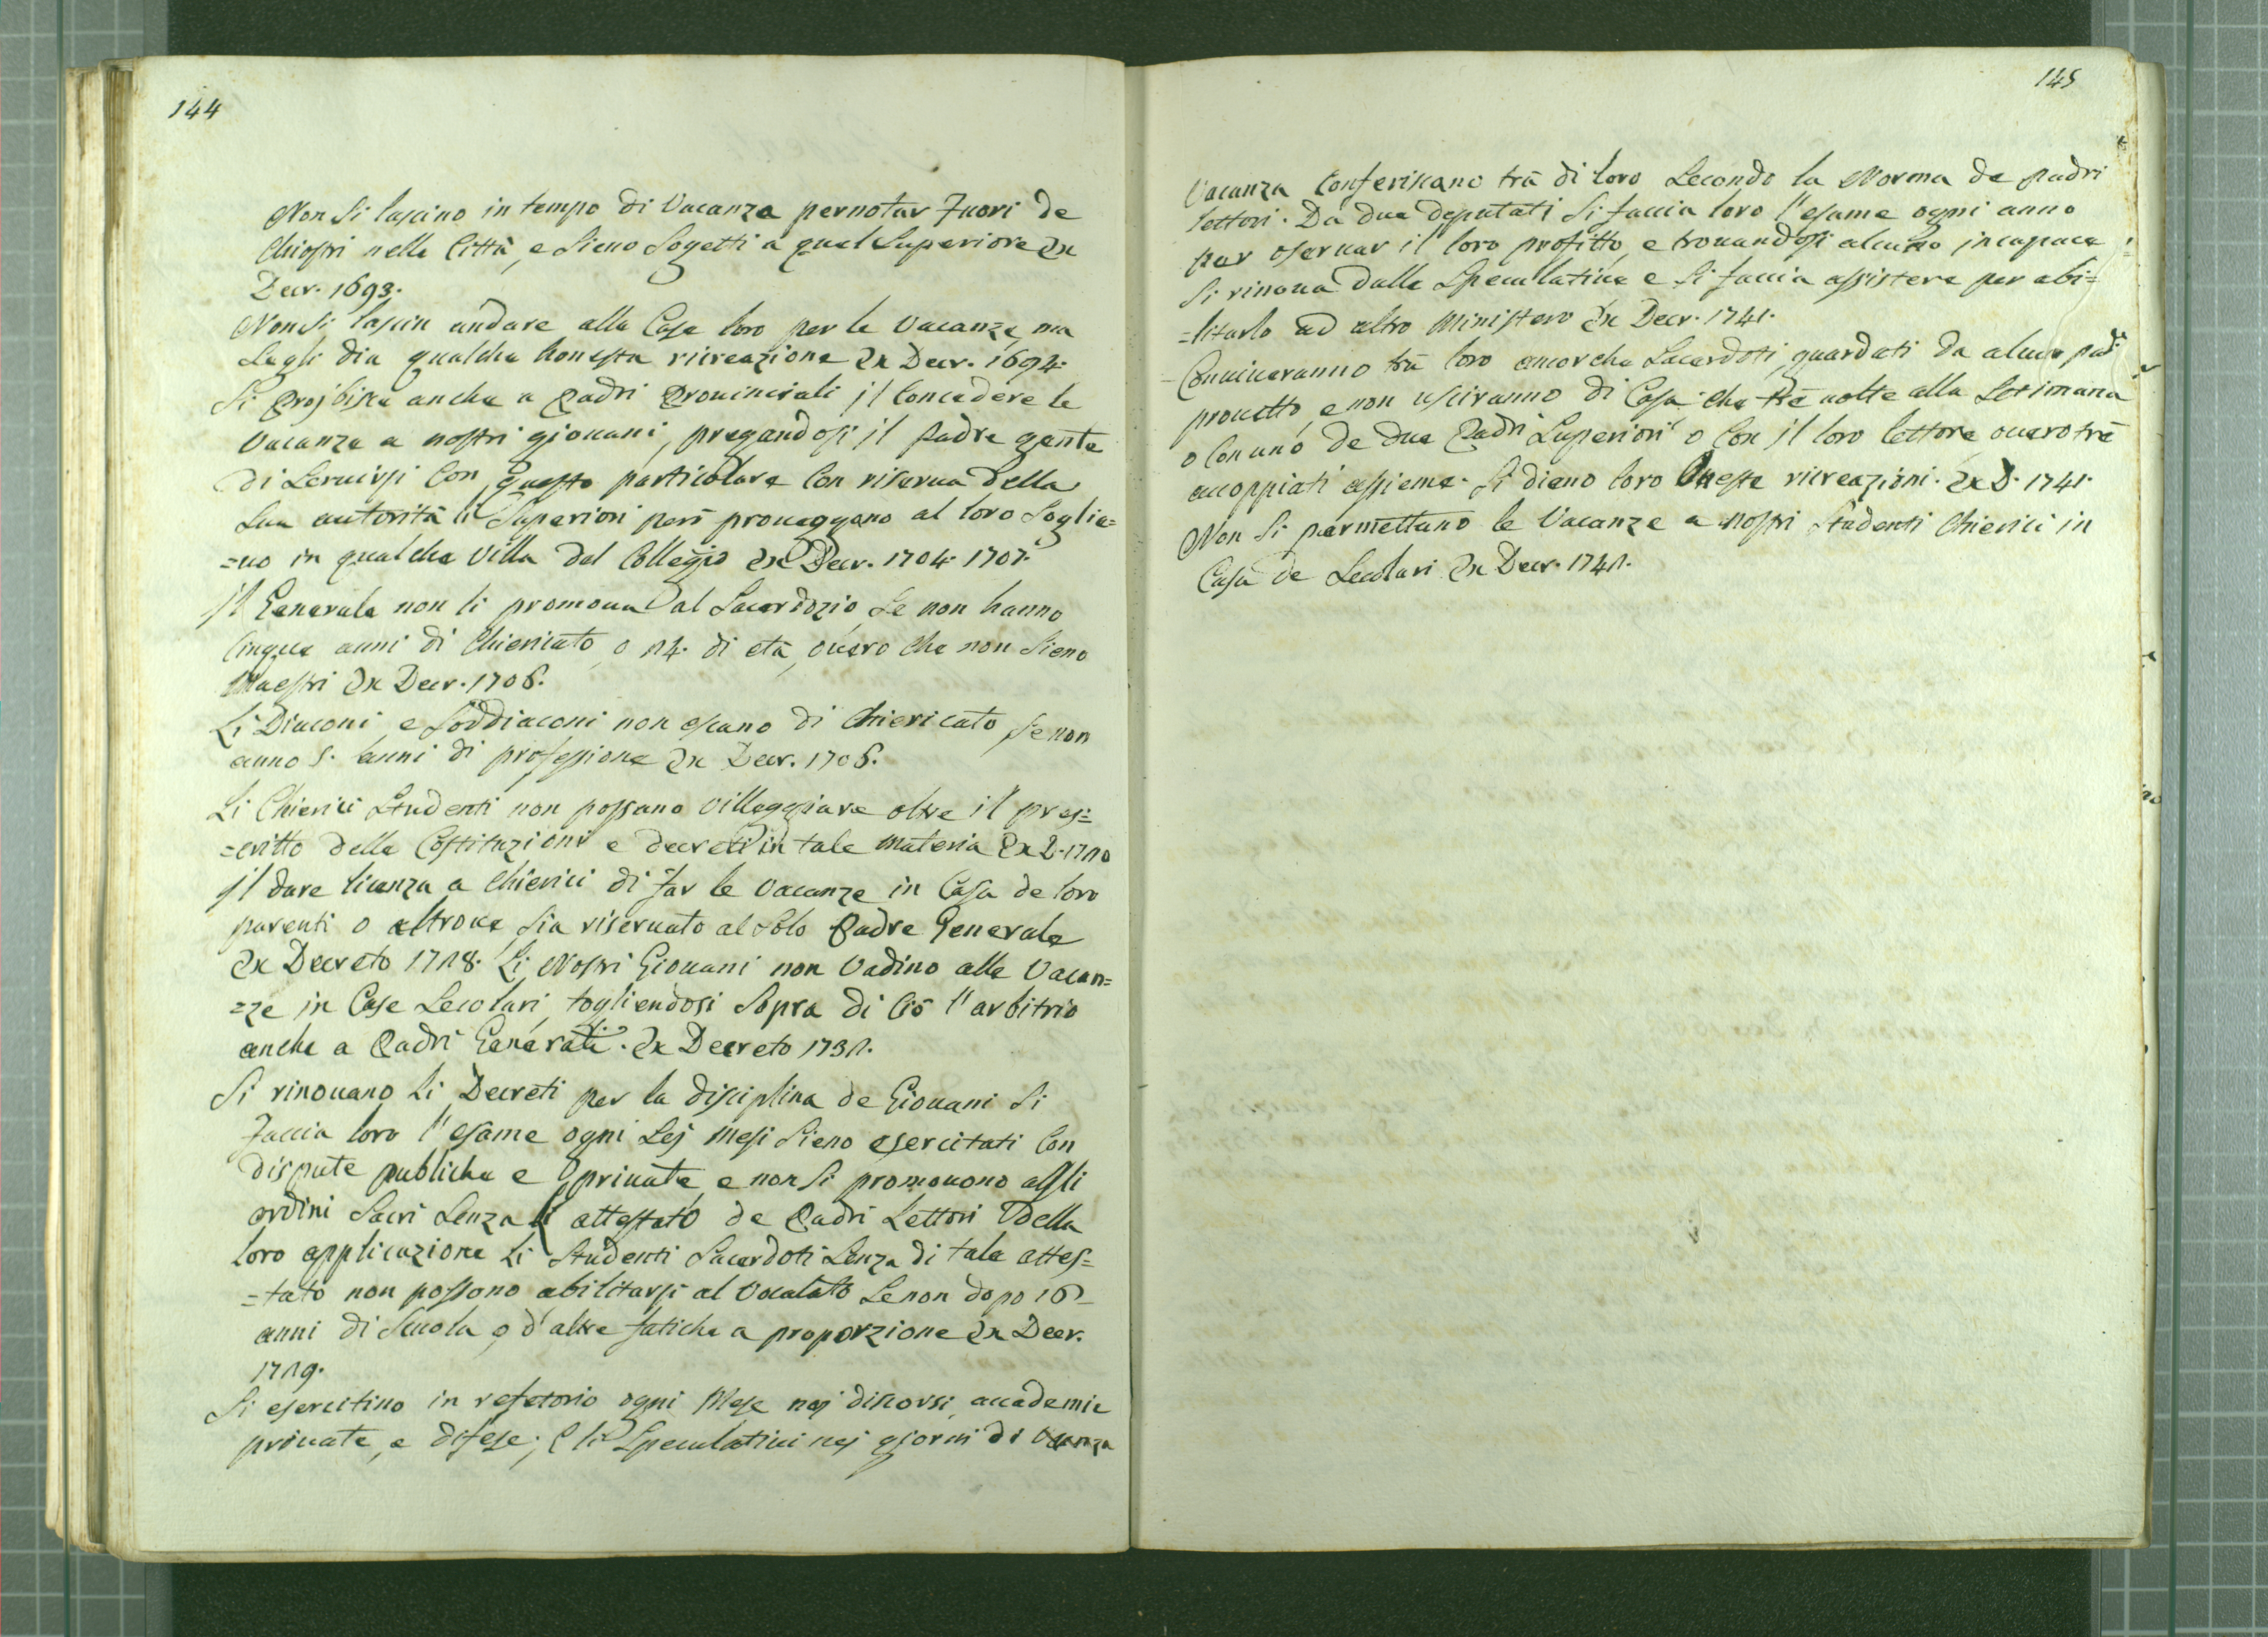 144
Non si lascino in tempo di Vacanza pernotar fuori de
Chiostri nelle Città, e sieno sogetti à quel Superiore Ex
Decr. 1693.
Non si lascin andare alle Case loro per le Vacanze, ma
se gli dia qualche honesta ricreazione Ex Decr. 1694.
Si projbisce anche a Padri Prouinciali jl Concedere le
Vacanze a nostri giouani, pregandosi jl Padre gente
di seruirsi Con questo particolare Con riserua della
sua autorità li Superiori però proueggano al loro Soglie=
=uo in qualche Villa del Collegio Ex Decr. 1704. 1707.
jl Generale non li promoua al Sacerdozio se non hanno
Cinque anni di Chiericato, o 24. di età, ouero che non sieno
Maestri Ex Decr. 1706.
Li Diaconi, e Soddiaconi non escano di Chiericato se non
anno 5. anni di professione Ex Decr. 1706.
Li Chierici Studenti non possano Villeggiare oltre il pres=
=critto delle Costituzioni e decreti in tale materia Ex D. 1710
jl dare licenza a Chierici di far le Vacanze in Casa de loro
parenti o altroue sia riseruato al solo Padre Generale
Ex Decreto 1718. Li Nostri Giouani non Vadino alle Vacan=
=ze in Case Secolari, togliendosi Sopra di Ciò l'arbitrio
anche a Padri Generali. Ex Decreto 1731.
Si rinouano Li Decreti per la disciplina de Giouani Si
faccia loro l'esame ogni Sej Mesi Sieno esercitati Con
dispute publiche e priuate, e non si promouono agli
ordini Sacri Senza l' attestato de Padri Lettori della
loro applicazione Li Studenti Sacerdoti Senza di tale attes=
=tato non possono abilitarsi al Vocalato Se non dopo 16
anni di Scuola, o d'altre fatiche a proporzione Ex Decr.
1719.
Si esercitino in refetorio ogni Mese nej discorsi, accademie
priuate, e difese; E li Speculatiui nej giorni di Vacanza
145
Vacanza Conferiscano trà di loro Secondo la Norma de padri
lettori. Da due deputati Si faccia loro l'esame ogni anno
per oseruar il loro profitto, e trouandosi alcuno jncapace
Si rimoua dalle Speculatiue e Si faccia assistere per abi=
=litarlo ad altro Ministero Ex Decr. 1741.
Conuiueranno trà loro ancorche Sacerdoti, guardati da alcun pad.
prouetto, e non usciranno di Casa che tre uolte alla Setimana
o Con uno de due Padri Superiori o Con jl loro lettore ouero trè
accoppiati assieme. Si dieno loro Oneste ricreazioni. Ex D. 1741.
Non Si permettano le Vacanze a nostri Studenti Chierici in
Casa de Secolari Ex Decr. 1741.